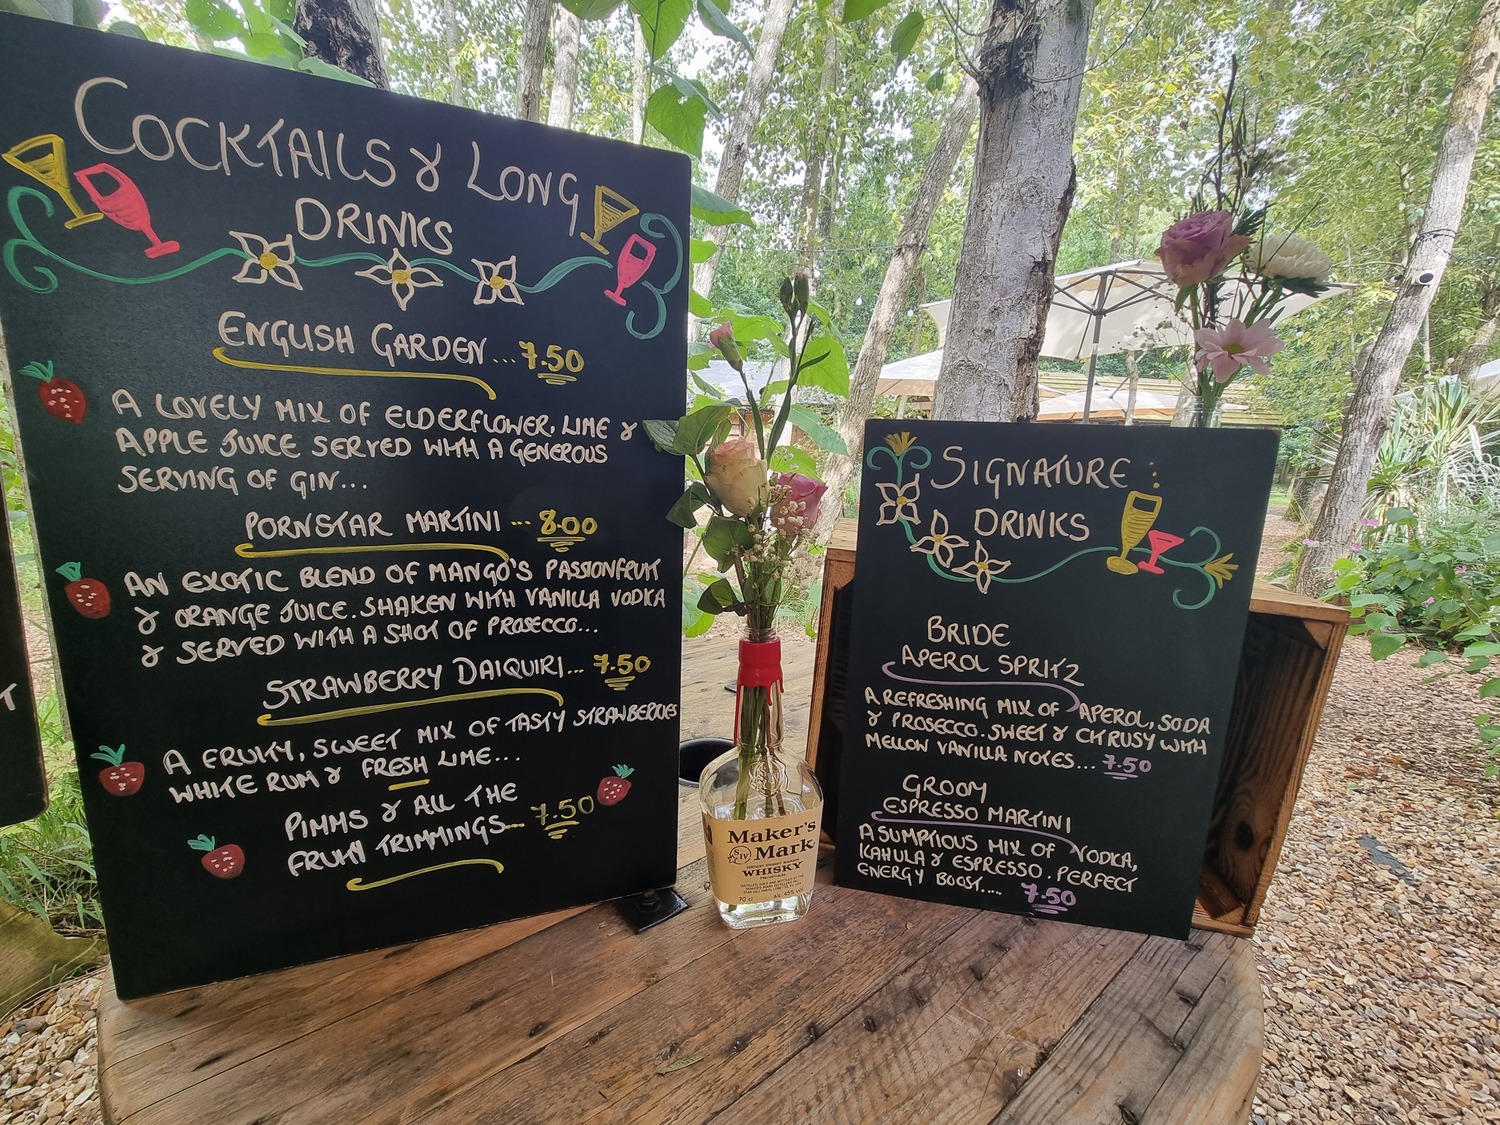 COCKTAILS & LONG
DRINKS
ENGLISH GARDEN... 7.50
A LOVELY MIX OF ELDERFLOWER, LIME &
APPLE JUICE SERVED WITH A GENEROUS
SERVING OF GIN...
PORNSTAR MARTINI ... 8.00
AN EXOTIC BLEND OF MANGO'S PASSIONFRUIT
& ORANGE JUICE. SHAKEN WITH VANILLA VODKA
& SERVED WITH A SHOT OF PROSECCO...
STRAWBERRY DAIQUIRI... 7.50
A FRUITY, SWEET MIX OF TASTY STRAWBERRIES
WHITE RUM & FRESH LIME...
PIMMS & ALL THE
FRUITY TRIMMINGS... 7.50
Maker's
SIV Mark
WHISKY
70 cl 45% vol
SIGNATURE :
DRINKS
BRIDE
APEROL SPRITZ
A REFRESHING MIX OF APEROL, SODA
& PROSECCO. SWEET & CITRUSY WITH
MELLOW VANILLA NOTES... 7.50
GROOM
ESPRESSO MARTINI
A SUMPTIOUS MIX OF VODKA,
KAHULA & ESPRESSO. PERFECT
ENERGY BOOST.... 7.50